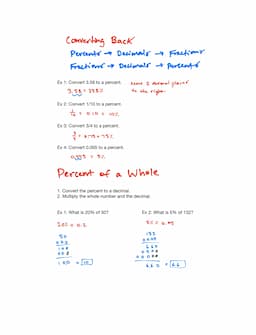 Converting Back
Percents → Decimals → Fractions
Fractions → Decimals → Percents
Ex 1: Convert 3.58 to a percent.
Move 2 decimal places
to the right.
3.58 = 358%
Ex 2: Convert 1/10 to a percent.
1/10 = 0.10 = 10%
Ex 3: Convert 3/4 to a percent.
3/4 = 0.75 = 75%
Ex 4: Convert 0.005 to a percent.
Percent of a Whole
1. Convert the percent to a decimal.
2. Multiply the whole number and the decimal.
Ex 1: What is 20% of 50?
Ex 2: What is 5% of 132?
20% = 0.2
5% = 0.05
50